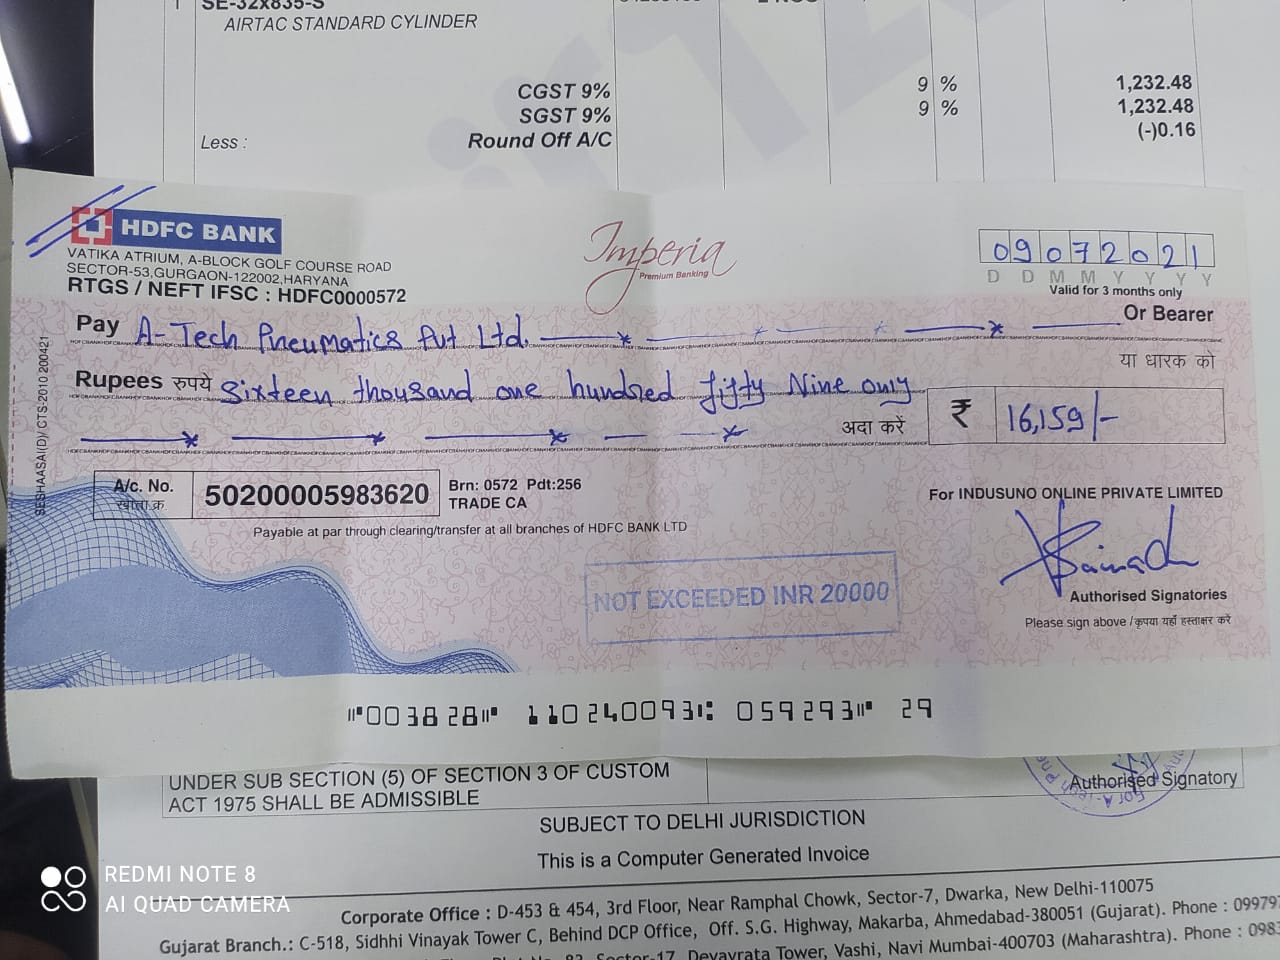 1 SE-32x835-S
AIRTAC STANDARD CYLINDER
CGST 9% 9 % 1,232.48
SGST 9% 9 % 1,232.48
Less : Round Off A/C (-)0.16
HDFC BANK
VATIKA ATRIUM, A-BLOCK GOLF COURSE ROAD
SECTOR-53,GURGAON-122002,HARYANA
RTGS / NEFT IFSC : HDFC0000572
Imperia
Premium Banking
09072021
D D M M Y Y Y Y
Valid for 3 months only
Pay A-Tech Pneumatics Pvt Ltd. Or Bearer
या धारक को
Rupees रुपये Sixteen thousand one hundred fifty Nine only
अदा करें ₹ 16,159/-
SESHAASAI(D)/ CTS-2010 200421
A/c. No.
खाता क्र.
50200005983620
Brn: 0572 Pdt:256
TRADE CA
For INDUSUNO ONLINE PRIVATE LIMITED
Payable at par through clearing/transfer at all branches of HDFC BANK LTD
NOT EXCEEDED INR 20000
Authorised Signatories
Please sign above /कृपया यहाँ हस्ताक्षर करें
⑈003828⑈ 110240093⑆ 059293⑈ 29
UNDER SUB SECTION (5) OF SECTION 3 OF CUSTOM
ACT 1975 SHALL BE ADMISSIBLE
Authorised Signatory
SUBJECT TO DELHI JURISDICTION
This is a Computer Generated Invoice
REDMI NOTE 8
AI QUAD CAMERA
Corporate Office : D-453 & 454, 3rd Floor, Near Ramphal Chowk, Sector-7, Dwarka, New Delhi-110075
Gujarat Branch.: C-518, Sidhhi Vinayak Tower C, Behind DCP Office, Off. S.G. Highway, Makarba, Ahmedabad-380051 (Gujarat). Phone : 09979
Sector-17, Devavrata Tower, Vashi, Navi Mumbai-400703 (Maharashtra). Phone : 098